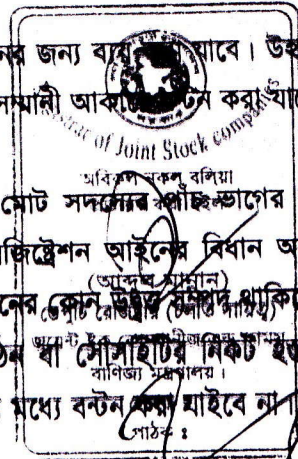 নর জন্য ব্যয় করা যাবে। উহ
সম্মানী আকারে বন্টন করা যাবে
of Joint Stock compan
অবিকল নকল বলিয়া
মোট সদস্যের পাঁচ ভাগের
জিষ্ট্রেশন আইনের বিধান অ
(আব্দুল মান্নান)
নের কোন উদ্বৃত্ত সম্পদ থাকিলে
ঠন বা সোসাইটির নিকট হস্ত
বাণিজ্য মন্ত্রণালয়।
মধ্যে বন্টন করা যাইবে না।
পাঠক :